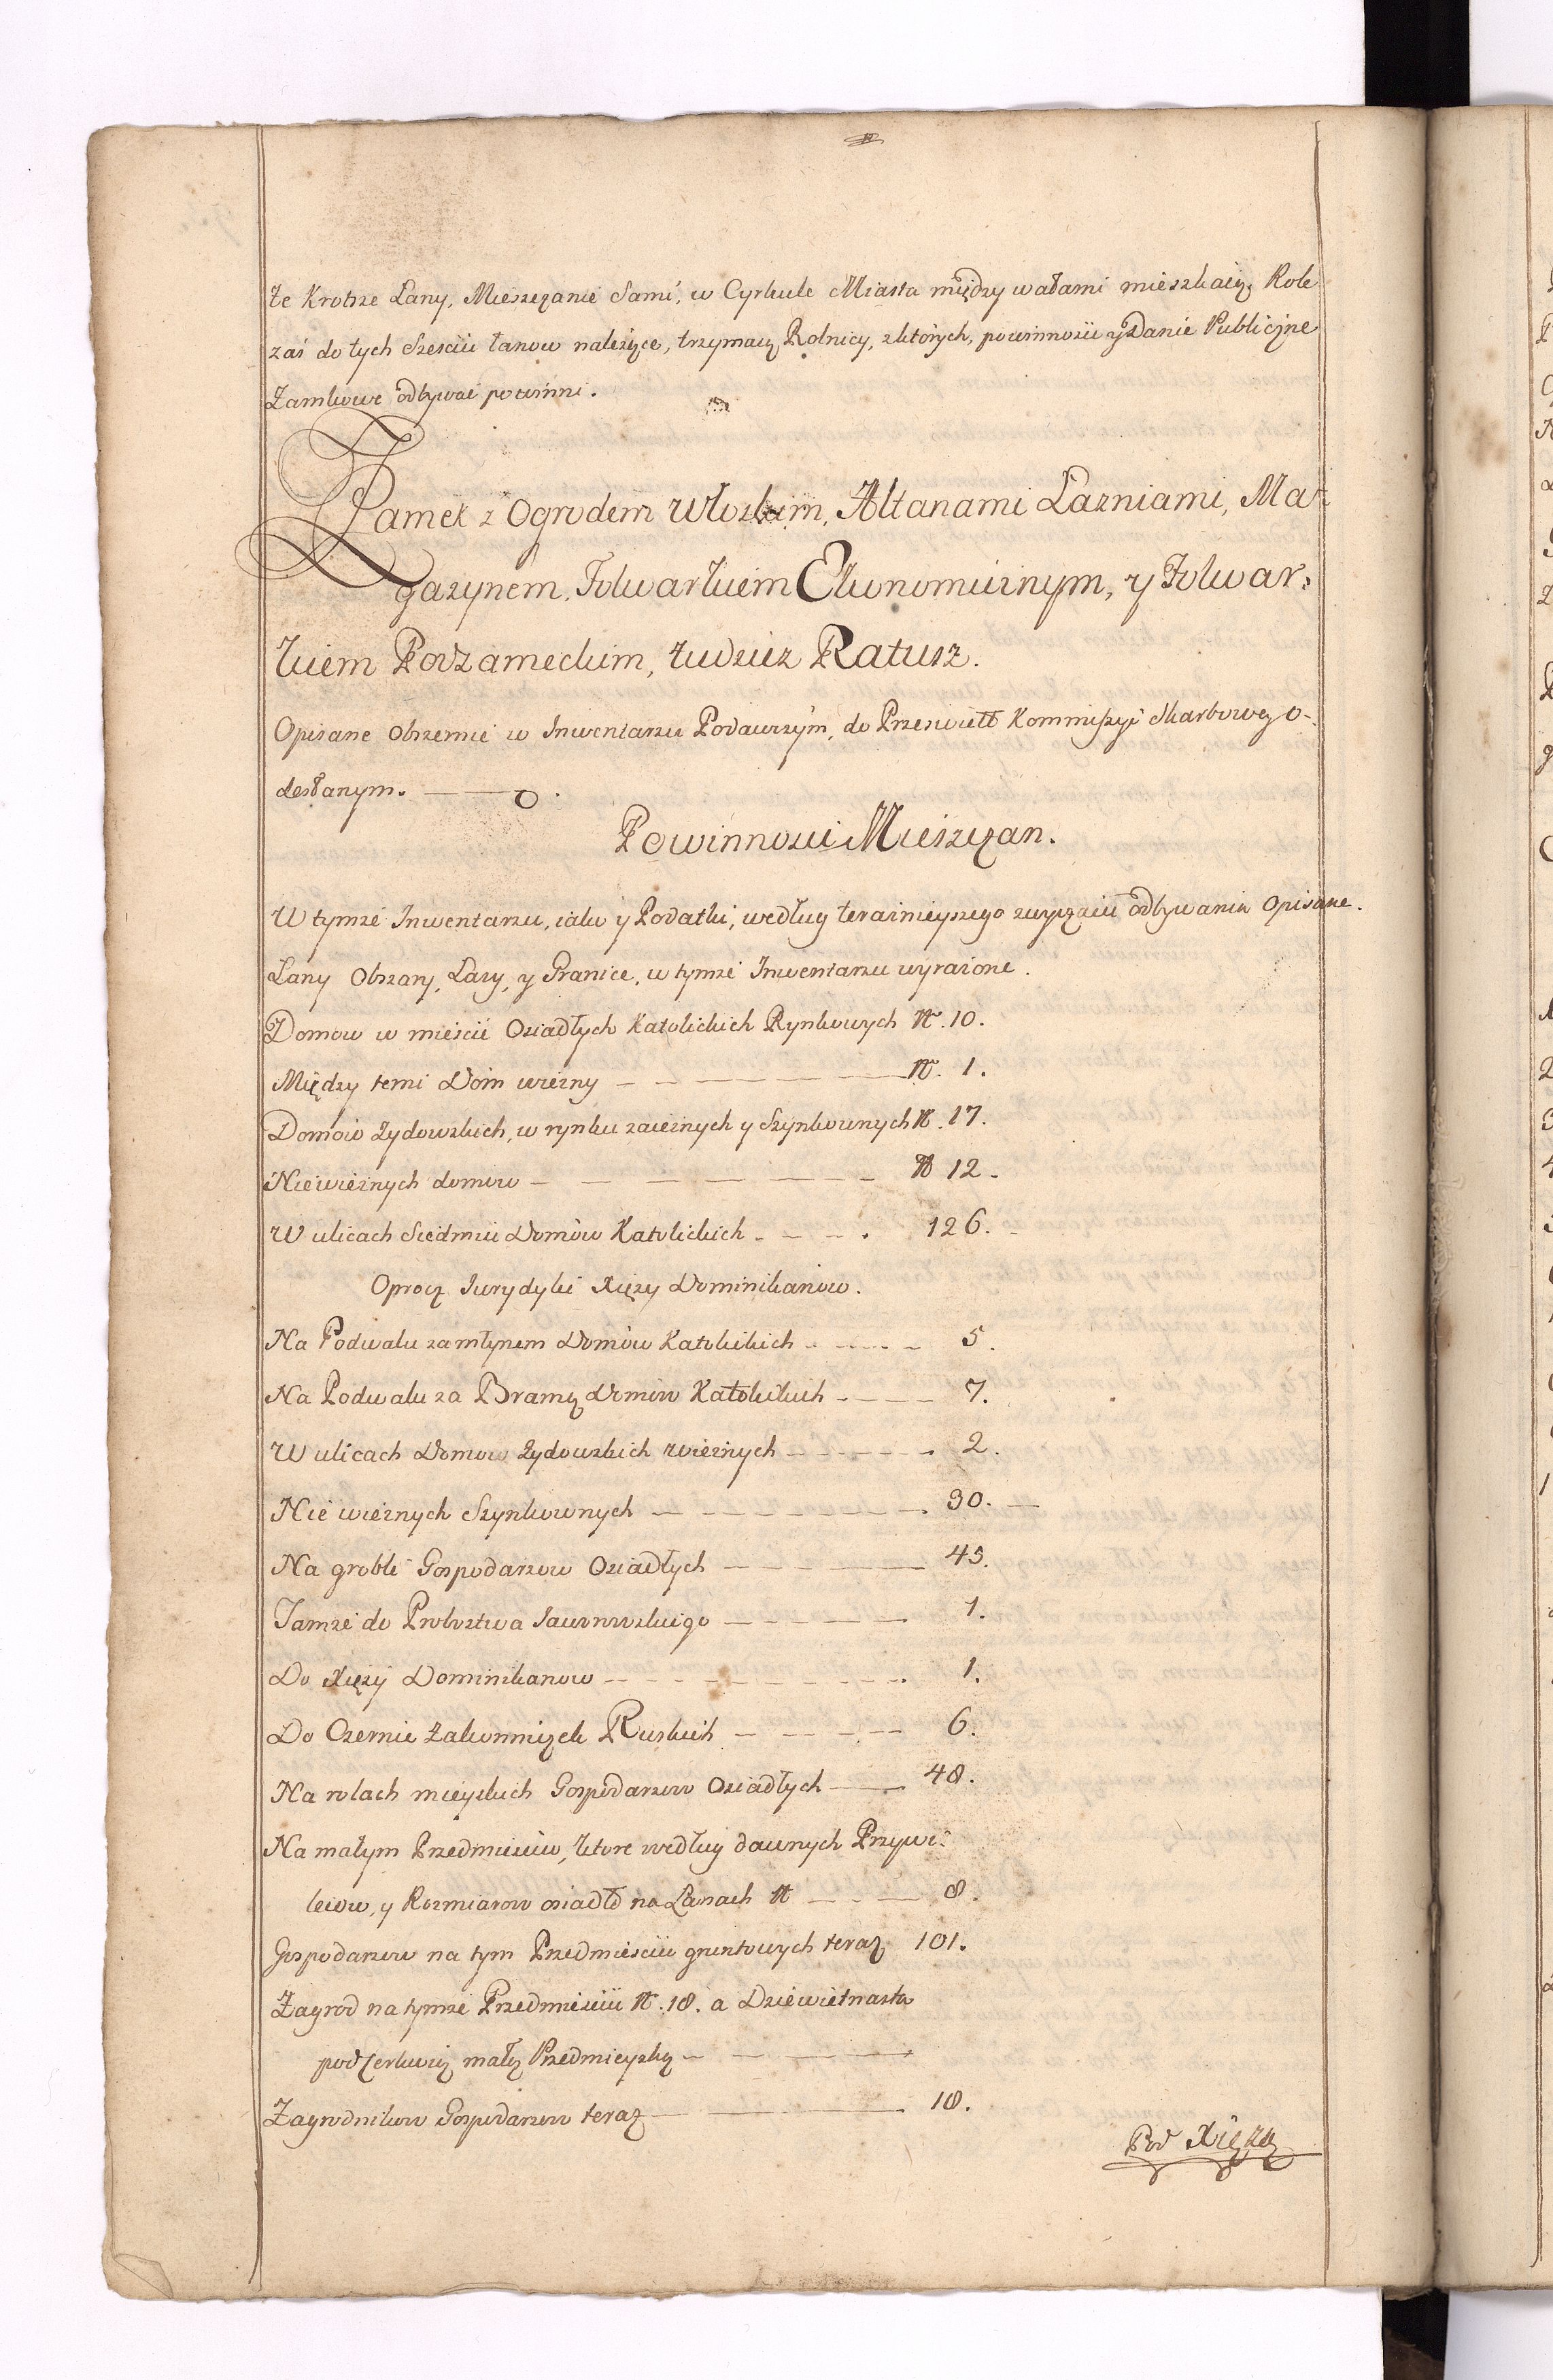 te Krotsze Łany, Mieszczanie Sami, w Cyrkule Miasta między wałami mieszkaią, Role
zaś do tych Szesciu łanow należące, trzymaią Rolnicy, z ktorych, powinnosci y Danie Publiczne
Zamkowe odbywać powinni.
Zamek z Ogrodem Włoskim, Altanami Lazniami, Ma-
gazynem, Folwarkiem Ekonomicznym, y Folwar-
kiem Podzameckim, tudziez Ratusz.
Opisane obszernie w Inwentarzu Podawczym, do Przeswiett Kommissyi Skarbowey o-
desłanym.
Powinnosci Mieszczan.
W tymże Inwentarzu, iako y Podatki, według teraznieyszego zwyczaiu odbywania Opisane.
Lany Obszary, Lasy, y Granice, w tymże Inwentarzu wyrażone.
Domow w mieście Osiadłych Katolickich Rynkowych N. 10.
Między temi Dom wiezny N. 1.
Domow Zydowskich, w rynku zaieznych y Szynkownych N. 17.
Niewieznych domow N 12
W ulicach Siedmiu Domow Katolickich 126.
Oprocz Jurydyki Xięży Dominikanow.
Na Podwalu za młynem Domow Katolickich 5.
Na Podwalu za Bramą Domow Katolickich 7.
W ulicach Domow Zydowskich wieznych 2.
Nie wieznych Szynkownych 30.
Na grobli Gospodarzow Osiadłych 45.
Tamże do Probostwa Jaworowskiego 1.
Do Xięży Dominikanow 1.
Do Czernic Zakonniczek Ruskich 6.
Na rolach mieyskich Gospodarzow Osiadłych 48.
Na małym Przedmiesciu, ktore według dawnych Przywi-
leiow, y Rozmiarow osiadło na Lanach N 8.
Gospodarzow na tym Przedmiesciu gruntowych teraz 101.
Zagrod na tymże Przedmiesciu N. 18. a Dziewietnasta
pod Cerkwią małą Przedmieyską
Zagrodnikow Gospodarzow teraz 18.
Pod Xiężą